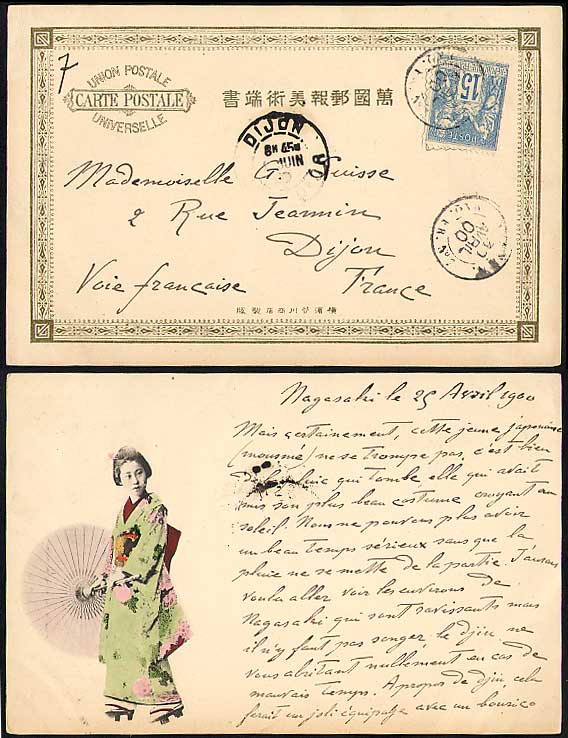 7
UNION POSTALE
CARTE POSTALE
UNIVERSELLE
萬國郵報美術端書
15
DIJON
JUIN
AVRIL
00
Mademoiselle G. Suisse
2 Rue Jeannin
Dijon
Voie française France
Nagasaki le 25 Avril 1900
Mais certainement, cette jeune japonaise
(mousmé) ne se trompe pas, c'est bien
pluie qui tombe elle qui avait
mis son plus beau costume croyant au
soleil. Nous ne pouvons plus avoir
un beau temps sérieux sans que la
pluie ne se mette de la partie. J'aurais
voulu aller voir les environs de
Nagasaki qui sont ravissants mais
il n'y faut pas songer, le djin ne
vous abritant nullement en cas de
mauvais temps. A propos de djin cela
ferait un joli équipage avec un bourico